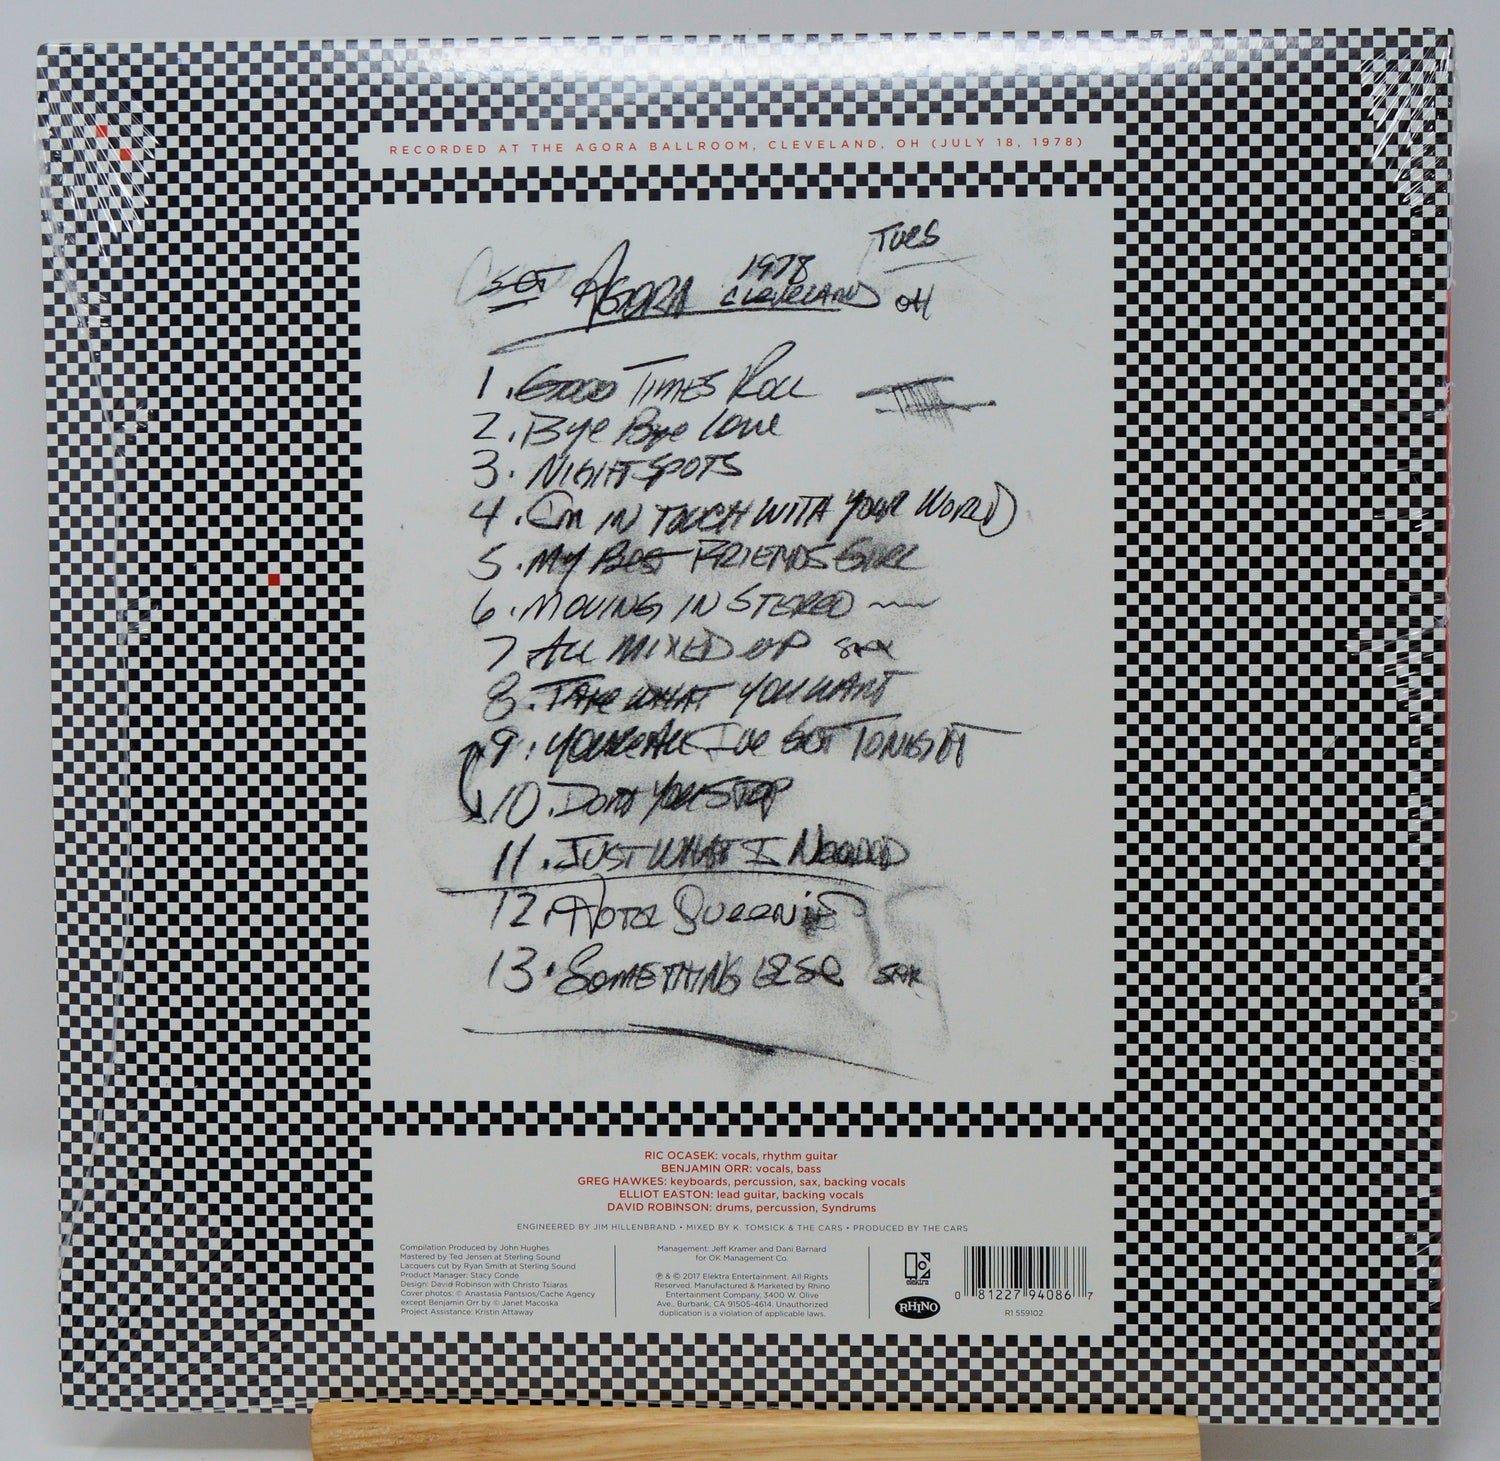 RECORDED AT THE AGORA BALLROOM, CLEVELAND, OH (JULY 18, 1978)
TUES
SET AGORA 1978 CLEVELAND OH
1. GOOD TIMES ROLL
2. Bye Bye Love
3. NIGHT SPOTS
4. I'm IN TOUCH WITH YOUR WORLD
5. MY BEST FRIENDS GIRL
6. MOVING IN STEREO
7 ALL MIXED UP SAX
8. TAKE WHAT YOU WANT
9. YOU'RE ALL I'VE GOT TONIGHT
10. DONT YOU STOP
11. JUST WHAT I NEEDED
12. HOTEL QUEENIE
13. SOMETHING ELSE SAX
RIC OCASEK: vocals, rhythm guitar
BENJAMIN ORR: vocals, bass
GREG HAWKES: keyboards, percussion, sax, backing vocals
ELLIOT EASTON: lead guitar, backing vocals
DAVID ROBINSON: drums, percussion, Syndrums
ENGINEERED BY JIM HILLENBRAND • MIXED BY K. TOMSICK & THE CARS • PRODUCED BY THE CARS
Compilation Produced by John Hughes
Mastered by Ted Jensen at Sterling Sound
Lacquers cut by Ryan Smith at Sterling Sound
Product Manager: Stacy Conde
Design: David Robinson with Christo Tsiaras
Cover photos: © Anastasia Pantsios/Cache Agency
except Benjamin Orr by © Janet Macoska
Project Assistance: Kristin Attaway
Management: Jeff Kramer and Dani Barnard
for OK Management Co.
℗ & © 2017 Elektra Entertainment. All Rights
Reserved. Manufactured & Marketed by Rhino
Entertainment Company, 3400 W. Olive
Ave., Burbank, CA 91505-4614. Unauthorized
duplication is a violation of applicable laws.
elektra
RHINO
0 81227 94086 7
R1 559102